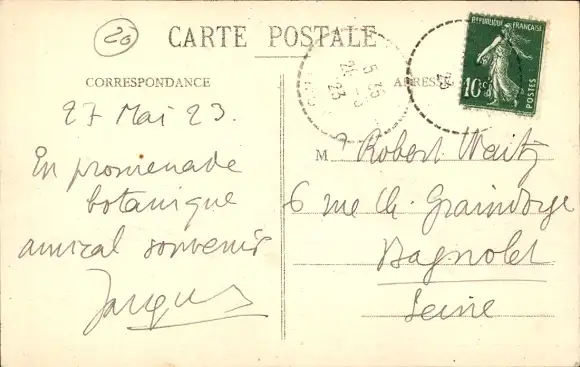 20
CARTE POSTALE
RÉPUBLIQUE FRANÇAISE
10c
POSTES
5 * 35
26 - 5
23
23
CORRESPONDANCE
ADRESSE
27 Mai 23.
En promenade
botanique
amical souvenir
Jacques
M r Robert Waitz
6 rue Ch. Graindorge
Bagnolet
Seine